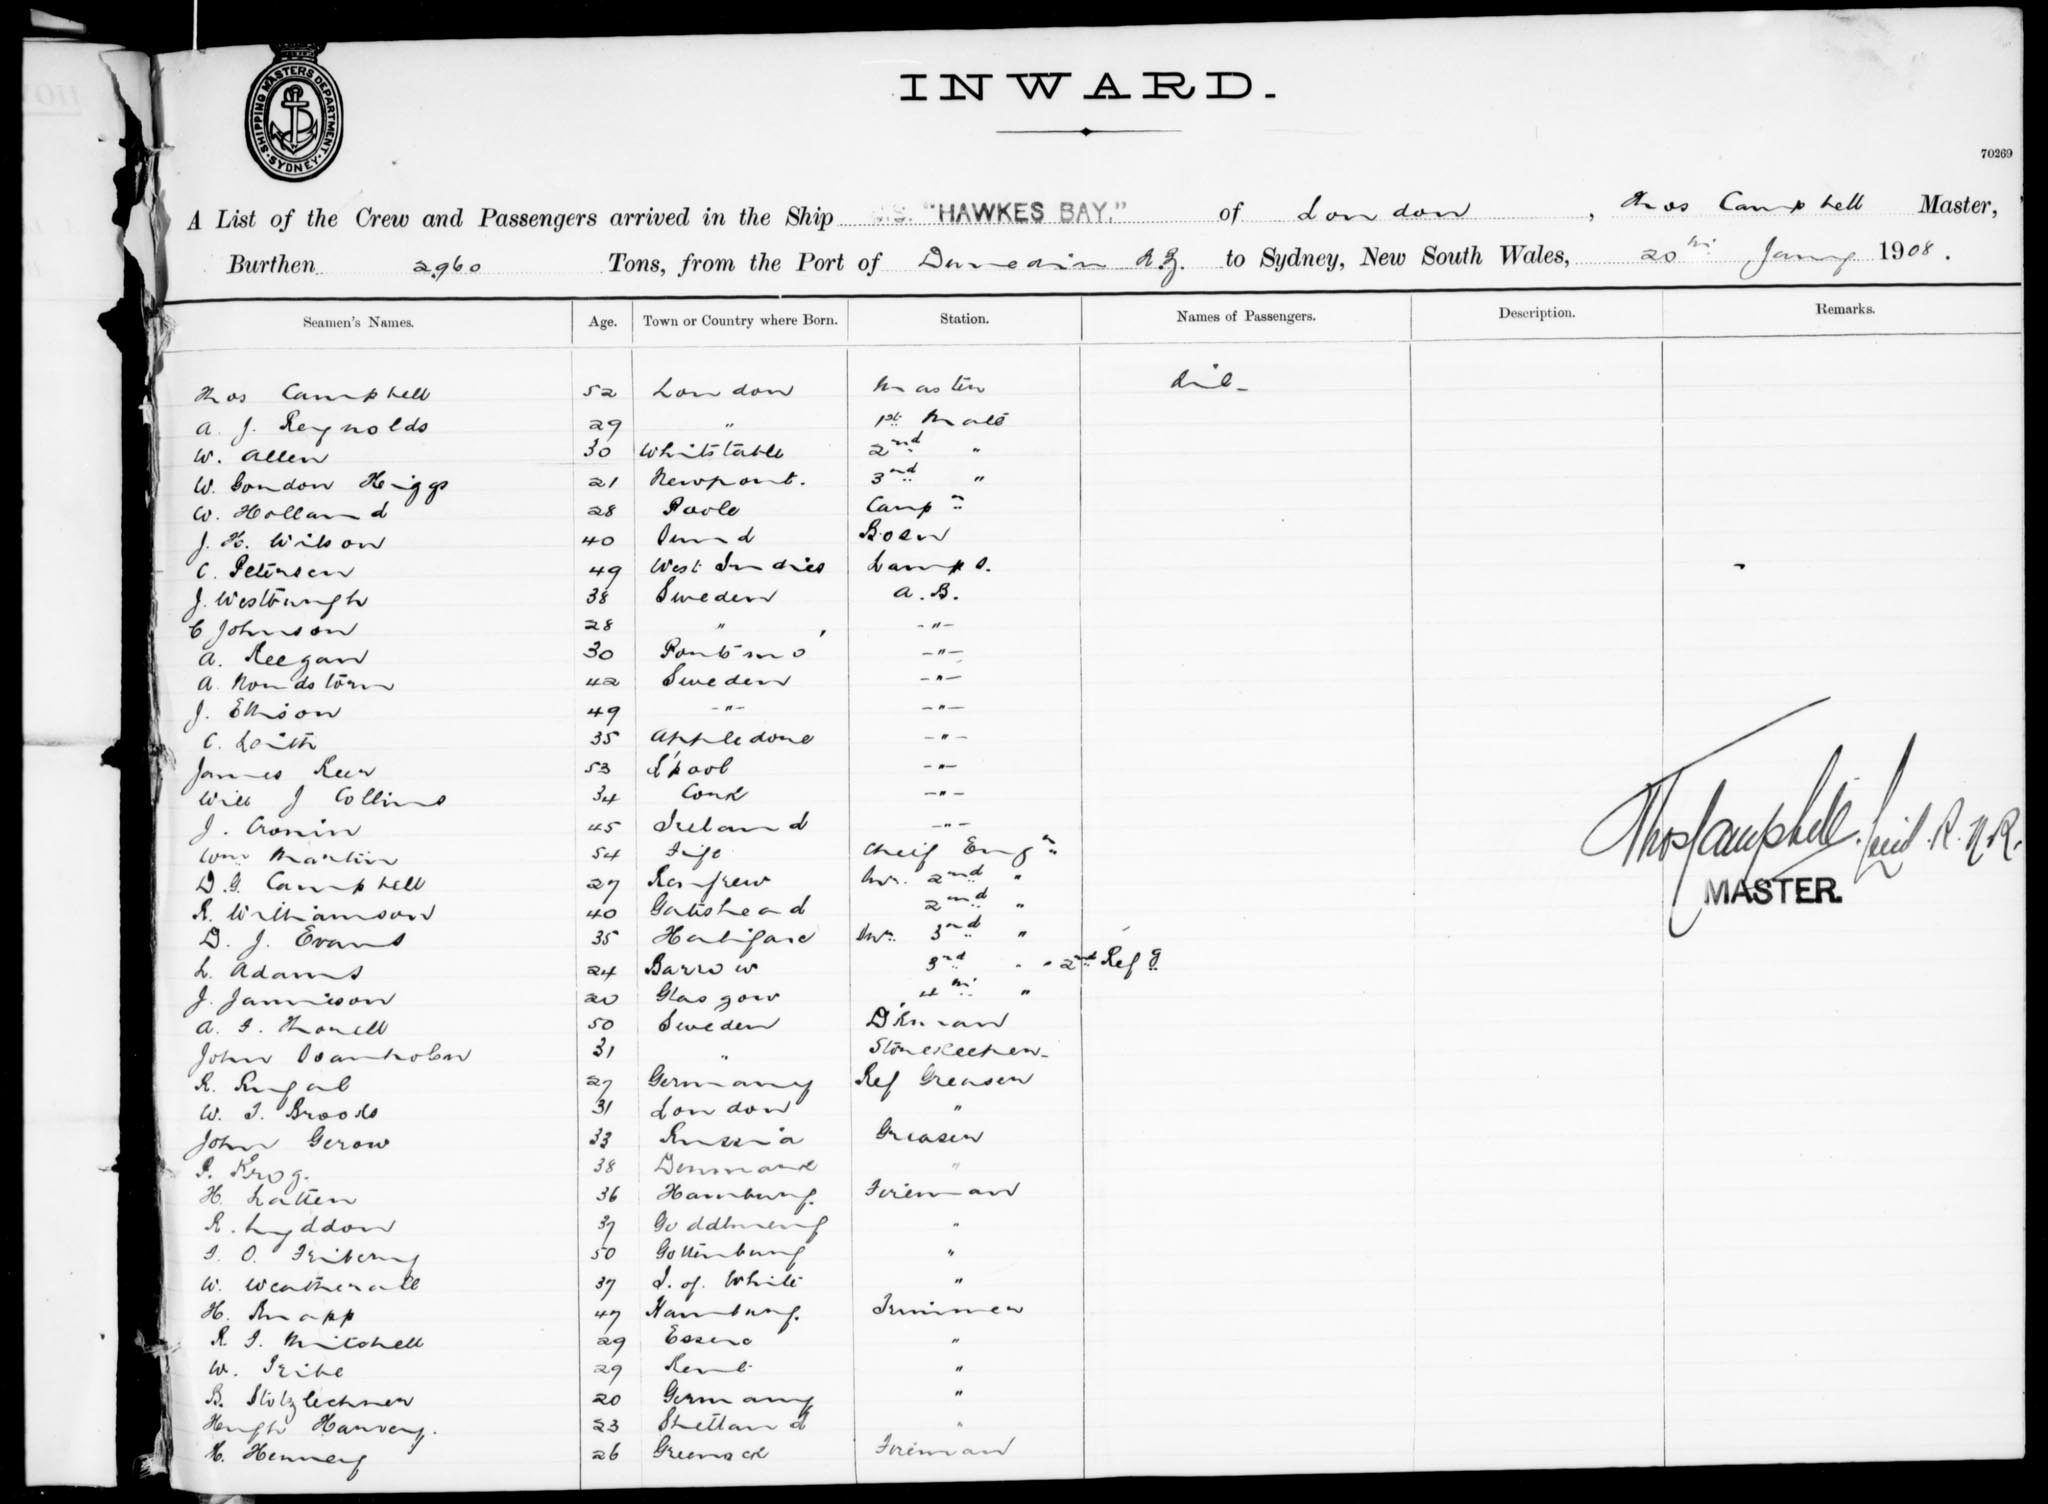 SHIPPING MASTERS DEPARTMENT · SYDNEY ·
INWARD.
70269
A List of the Crew and Passengers arrived in the Ship S.S. "HAWKES BAY." of London, Thos Campbell Master,
Burthen 2960 Tons, from the Port of Dunedin N.Z. to Sydney, New South Wales, 20th Jany 1908.
Seamen's Names. Age. Town or Country where Born. Station. Names of Passengers. Description. Remarks.
Thos Campbell 52 London Master Nil
A. J. Reynolds 29 " 1st Mate
W. Allen 30 Whitstable 2nd "
W. Gordon Heiggs 21 Newport. 3rd "
W. Holland 28 Poole Carpr
J. H. Wilson 40 Bosn
C. Petersen 49 West Indies Lamps.
J. Westburgh 38 Sweden A.B.
C Johnson 28 " -"-
A. Reegan 30 Portsmo -"-
A. Nordstorm 42 Sweden -"-
J. Ellison 49 -"- -"-
C. Leith 35 Appledore -"-
James Keer 53 L'pool -"-
Will J Collins 34 Cork -"-
J. Cronin 45 Ireland -"-
Wm Martin 54 Fife Cheif Engr
D. G. Campbell 27 Renfrew Jnr. 2nd "
R. Williamson 40 Gateshead 2nd "
D. J. Evans 35 Jnr. 3rd "
L. Adams 24 Barrow 3rd " " 2nd Refg
J. Jamieson 20 Glasgow 4th "
A. F. Thorell 50 Sweden D'kman
John 31 " Storekeeper
R. 27 Germany Ref Greaser
W. T. Brooks 31 London "
John Gerow 33 Russia Greaser
P. Krog. 38 Denmark "
H. Latten 36 Hamburg. Fireman
R. Lyddon 37 "
F. O. Friberg 50 Gottenburg "
W. Weatherall 37 I. of White "
H. Knapp 47 Hamburg. Trimmer
R. J. Mitchell 29 Essex "
W. Tribe 29 Kent "
B. Stolzlechner 20 Germany "
Hugh Harvey. 23 Shetland "
H. Hennery 26 Greenock Fireman
Thos Campbell. Lieut. R.N.R.
MASTER.